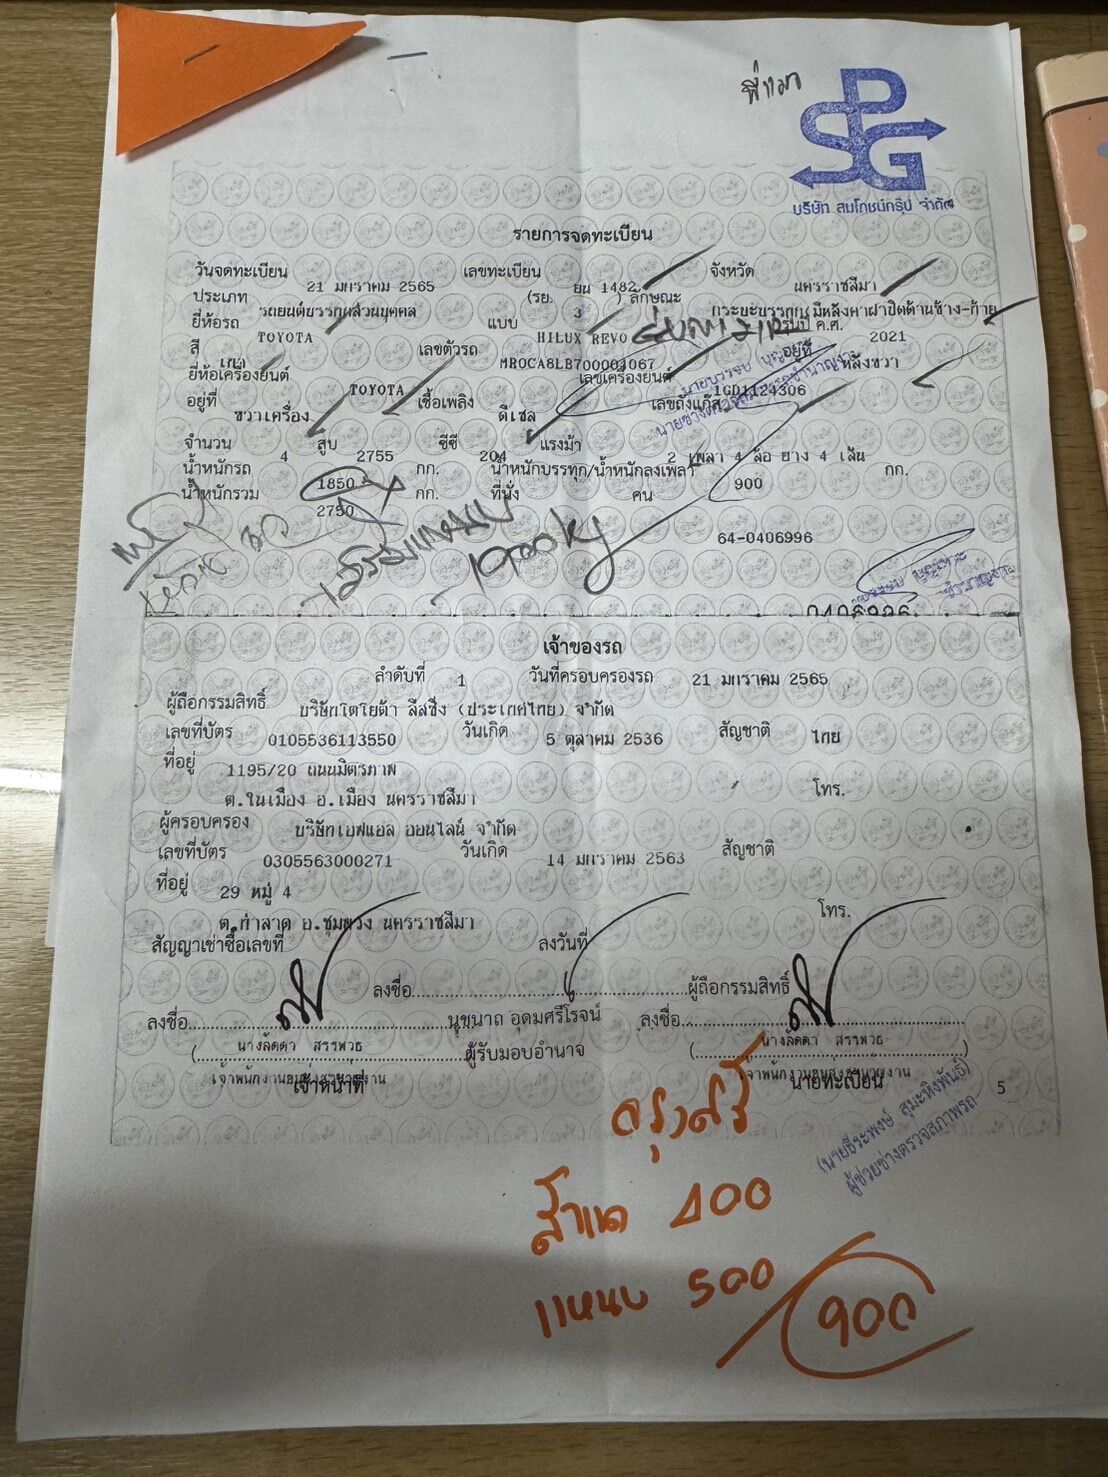 พี่แมว
SPG
บริษัท สมโภชน์กรุ๊ป จำกัด
รายการจดทะเบียน
วันจดทะเบียน 21 มกราคม 2565 เลขทะเบียน ยน 1482 จังหวัด นครราชสีมา
ประเภท รถยนต์บรรทุกส่วนบุคคล (รย. 3 ) ลักษณะ กระบะบรรทุก มีหลังคาฝาปิดด้านข้าง-ท้าย
ยี่ห้อรถ TOYOTA แบบ HILUX REVO รุ่นปี ค.ศ. 2021
สี เทา เลขตัวรถ MR0CA8LB700001067 อยู่ที่ หลังขวา
ยี่ห้อเครื่องยนต์ TOYOTA เลขเครื่องยนต์ 1GD1124306
อยู่ที่ ขวาเครื่อง เชื้อเพลิง ดีเซล เลขถังแก๊ส
จำนวน 4 สูบ 2755 ซีซี 204 แรงม้า 2 เพลา 4 ล้อ ยาง 4 เส้น
น้ำหนักรถ 1850 กก. น้ำหนักบรรทุก/น้ำหนักลงเพลา 900 กก.
น้ำหนักรวม 2750 กก. ที่นั่ง คน
1900kg
64-0406996
0406996
เจ้าของรถ
ลำดับที่ 1 วันที่ครอบครองรถ 21 มกราคม 2565
ผู้ถือกรรมสิทธิ์ บริษัทโตโยต้า ลีสซิ่ง (ประเทศไทย) จำกัด
เลขที่บัตร 0105536113550 วันเกิด 5 ตุลาคม 2536 สัญชาติ ไทย
ที่อยู่ 1195/20 ถนนมิตรภาพ
ต.ในเมือง อ.เมือง นครราชสีมา โทร.
ผู้ครอบครอง บริษัทเอฟแอล ออนไลน์ จำกัด
เลขที่บัตร 0305563000271 วันเกิด 14 มกราคม 2563 สัญชาติ
ที่อยู่ 29 หมู่ 4
ต.ท่าลาด อ.ชุมพวง นครราชสีมา โทร.
สัญญาเช่าซื้อเลขที่ ลงวันที่
ลงชื่อ ผู้ถือกรรมสิทธิ์
ลงชื่อ นุขนาถ อุดมศรีโรจน์ ลงชื่อ
( นางลัดดา สรรพวธ ผู้รับมอบอำนาจ ( นางลัดดา สรรพวธ )
เจ้าพนักงานขนส่งชำนาญงาน เจ้าพนักงานขนส่งชำนาญงาน
เจ้าหน้าที่ นายทะเบียน 5
(นายธีระพงษ์ สุมะหิงพันธ์)
ผู้ช่วยช่างตรวจสภาพรถ
กรุงศรี
สำเนา 400
แหนบ 500
900